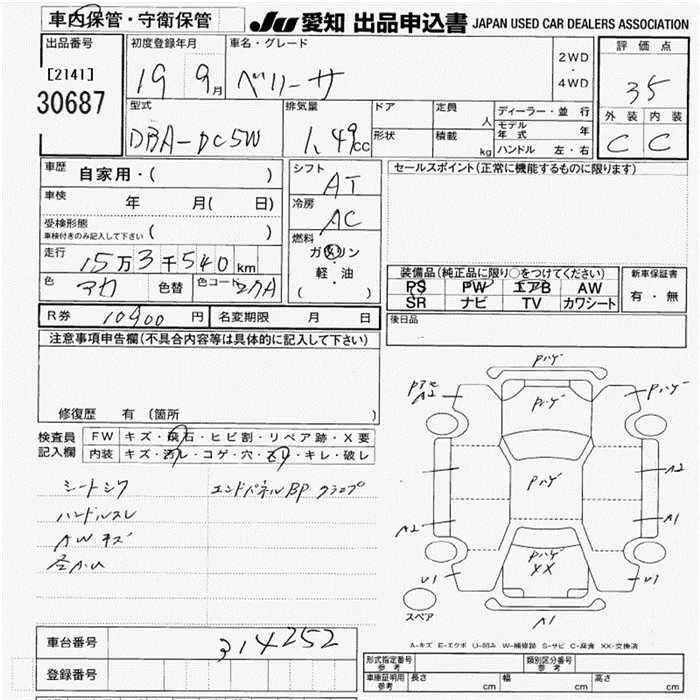 車内保管・守衛保管
JU 愛知 出品申込書 JAPAN USED CAR DEALERS ASSOCIATION
出品番号
[2141]
30687
初度登録年月
19 9月
車名・グレード
ベリーサ
2WD
・
4WD
評価点
35
外装 内装
C C
型式
DBA-DC5W
排気量
1.49cc
ドア
形状
定員
人
積載
kg
ディーラー・並行
モデル年式 年
ハンドル 左・右
車歴
自家用・( )
車検
年 月( 日)
受検形態
車検付きのみ記入して下さい ( )
走行
15万3千540km
色
アカ
色替
色コード 27A
シフト
AT
冷房
AC
燃料
ガソリン
軽・油
( )
セールスポイント(正常に機能するものに限ります)
装備品(純正品に限り○をつけてください)
PS PW エアB AW
SR ナビ TV カワシート
新車保証書
有・無
後日品
R券 10900円
名変期限 月 日
注意事項申告欄(不具合内容等は具体的に記入して下さい)
修復歴 有 (箇所 )
検査員
記入欄
FW キズ・飛石・ヒビ割・リペア跡・X要
内装 キズ・汚レ・コゲ・穴・ズリ・キレ・破レ
シートシワ
ハンドルスレ
AWキズ
エンドパネルBP クランプ
Pハゲ
A2
Pハゲ
Pハゲ
Pハゲ
A2
A2
A1
Pハゲ
XX
U1
U1
A1
スペア
A-キズ E-エクボ U-凹み W-補修跡 S-サビ C-腐食 XX-交換済
車台番号
314252
登録番号
形式指定番号
参考
類別区分番号
参考
車庫証明用
参考
長さ cm
幅 cm
高さ cm